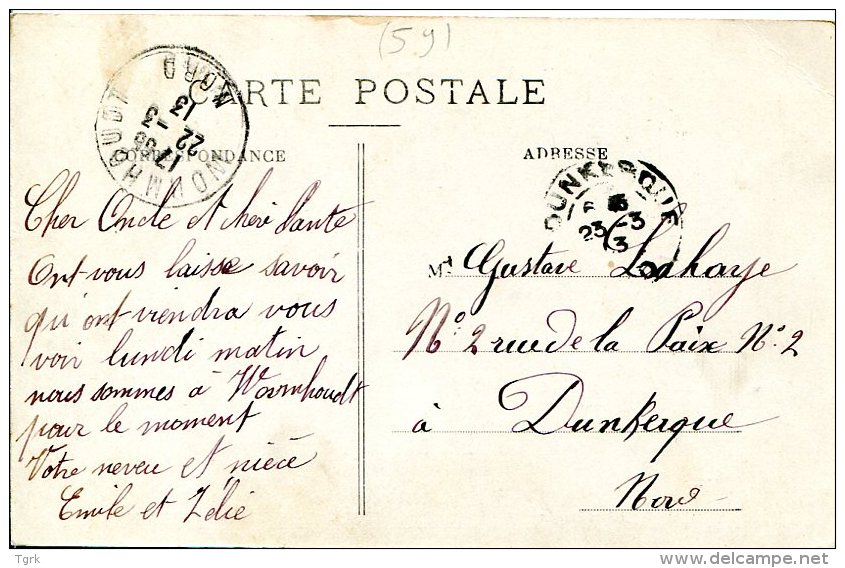 (59)
CARTE POSTALE
CORRESPONDANCE
Cher Oncle et cheri Tante
Ont vous laisse savoir
qu'ont viendra vous
voir lundi matin
nous sommes à Wormhoudt
pour le moment
Votre neveu et nièce
Emile et Zélie
NORD
17 35
22 -3
13
ADRESSE
DUNKERQUE
23 -3
13
M Gustave Lahaye
N° 2 rue de la Paix N° 2
à Dunkerque
Nord
Tgrk
www.delcampe.net